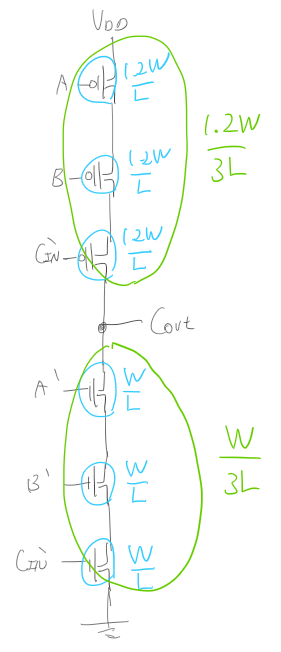 VDD
A 1.2W/L
B 1.2W/L
CIN 1.2W/L
1.2W/3L
Cout
A' W/L
B' W/L
W/3L
CIN' W/L